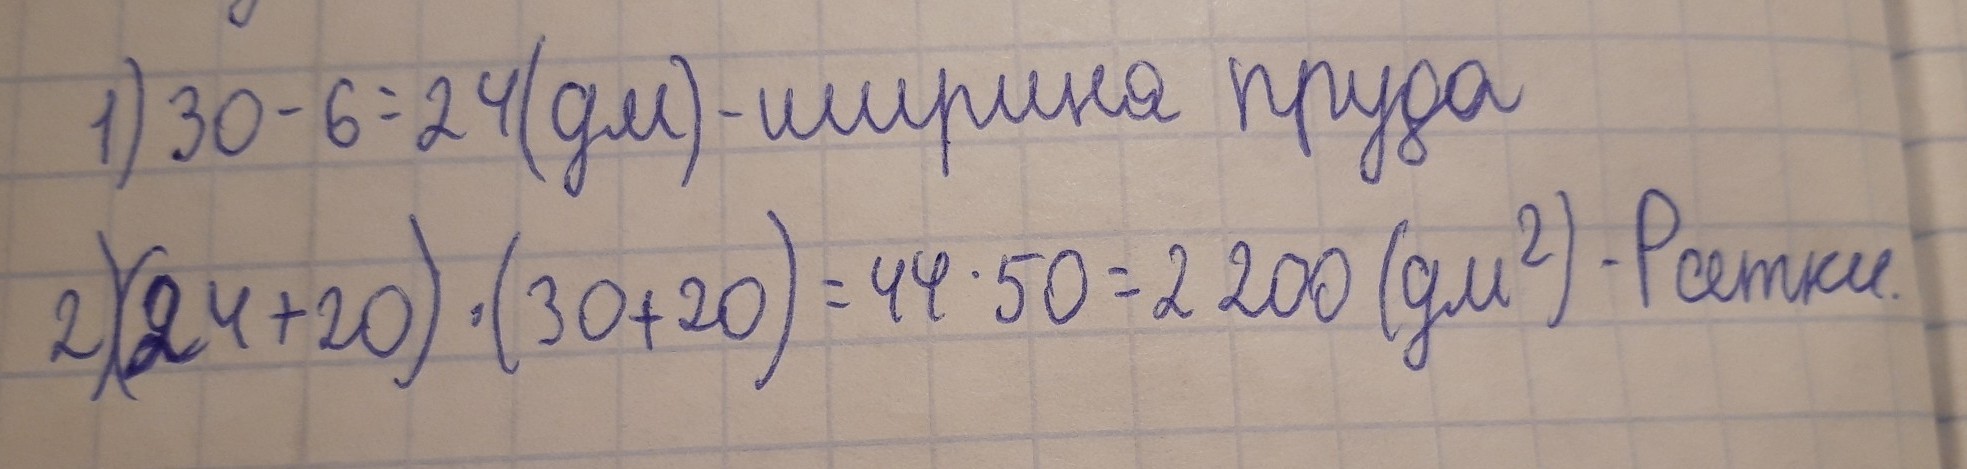 1) 30 - 6 = 24 (дм) - ширина пруда
2) (24 + 20) · (30 + 20) = 44 · 50 = 2 200 (дм²) - Pсетки.